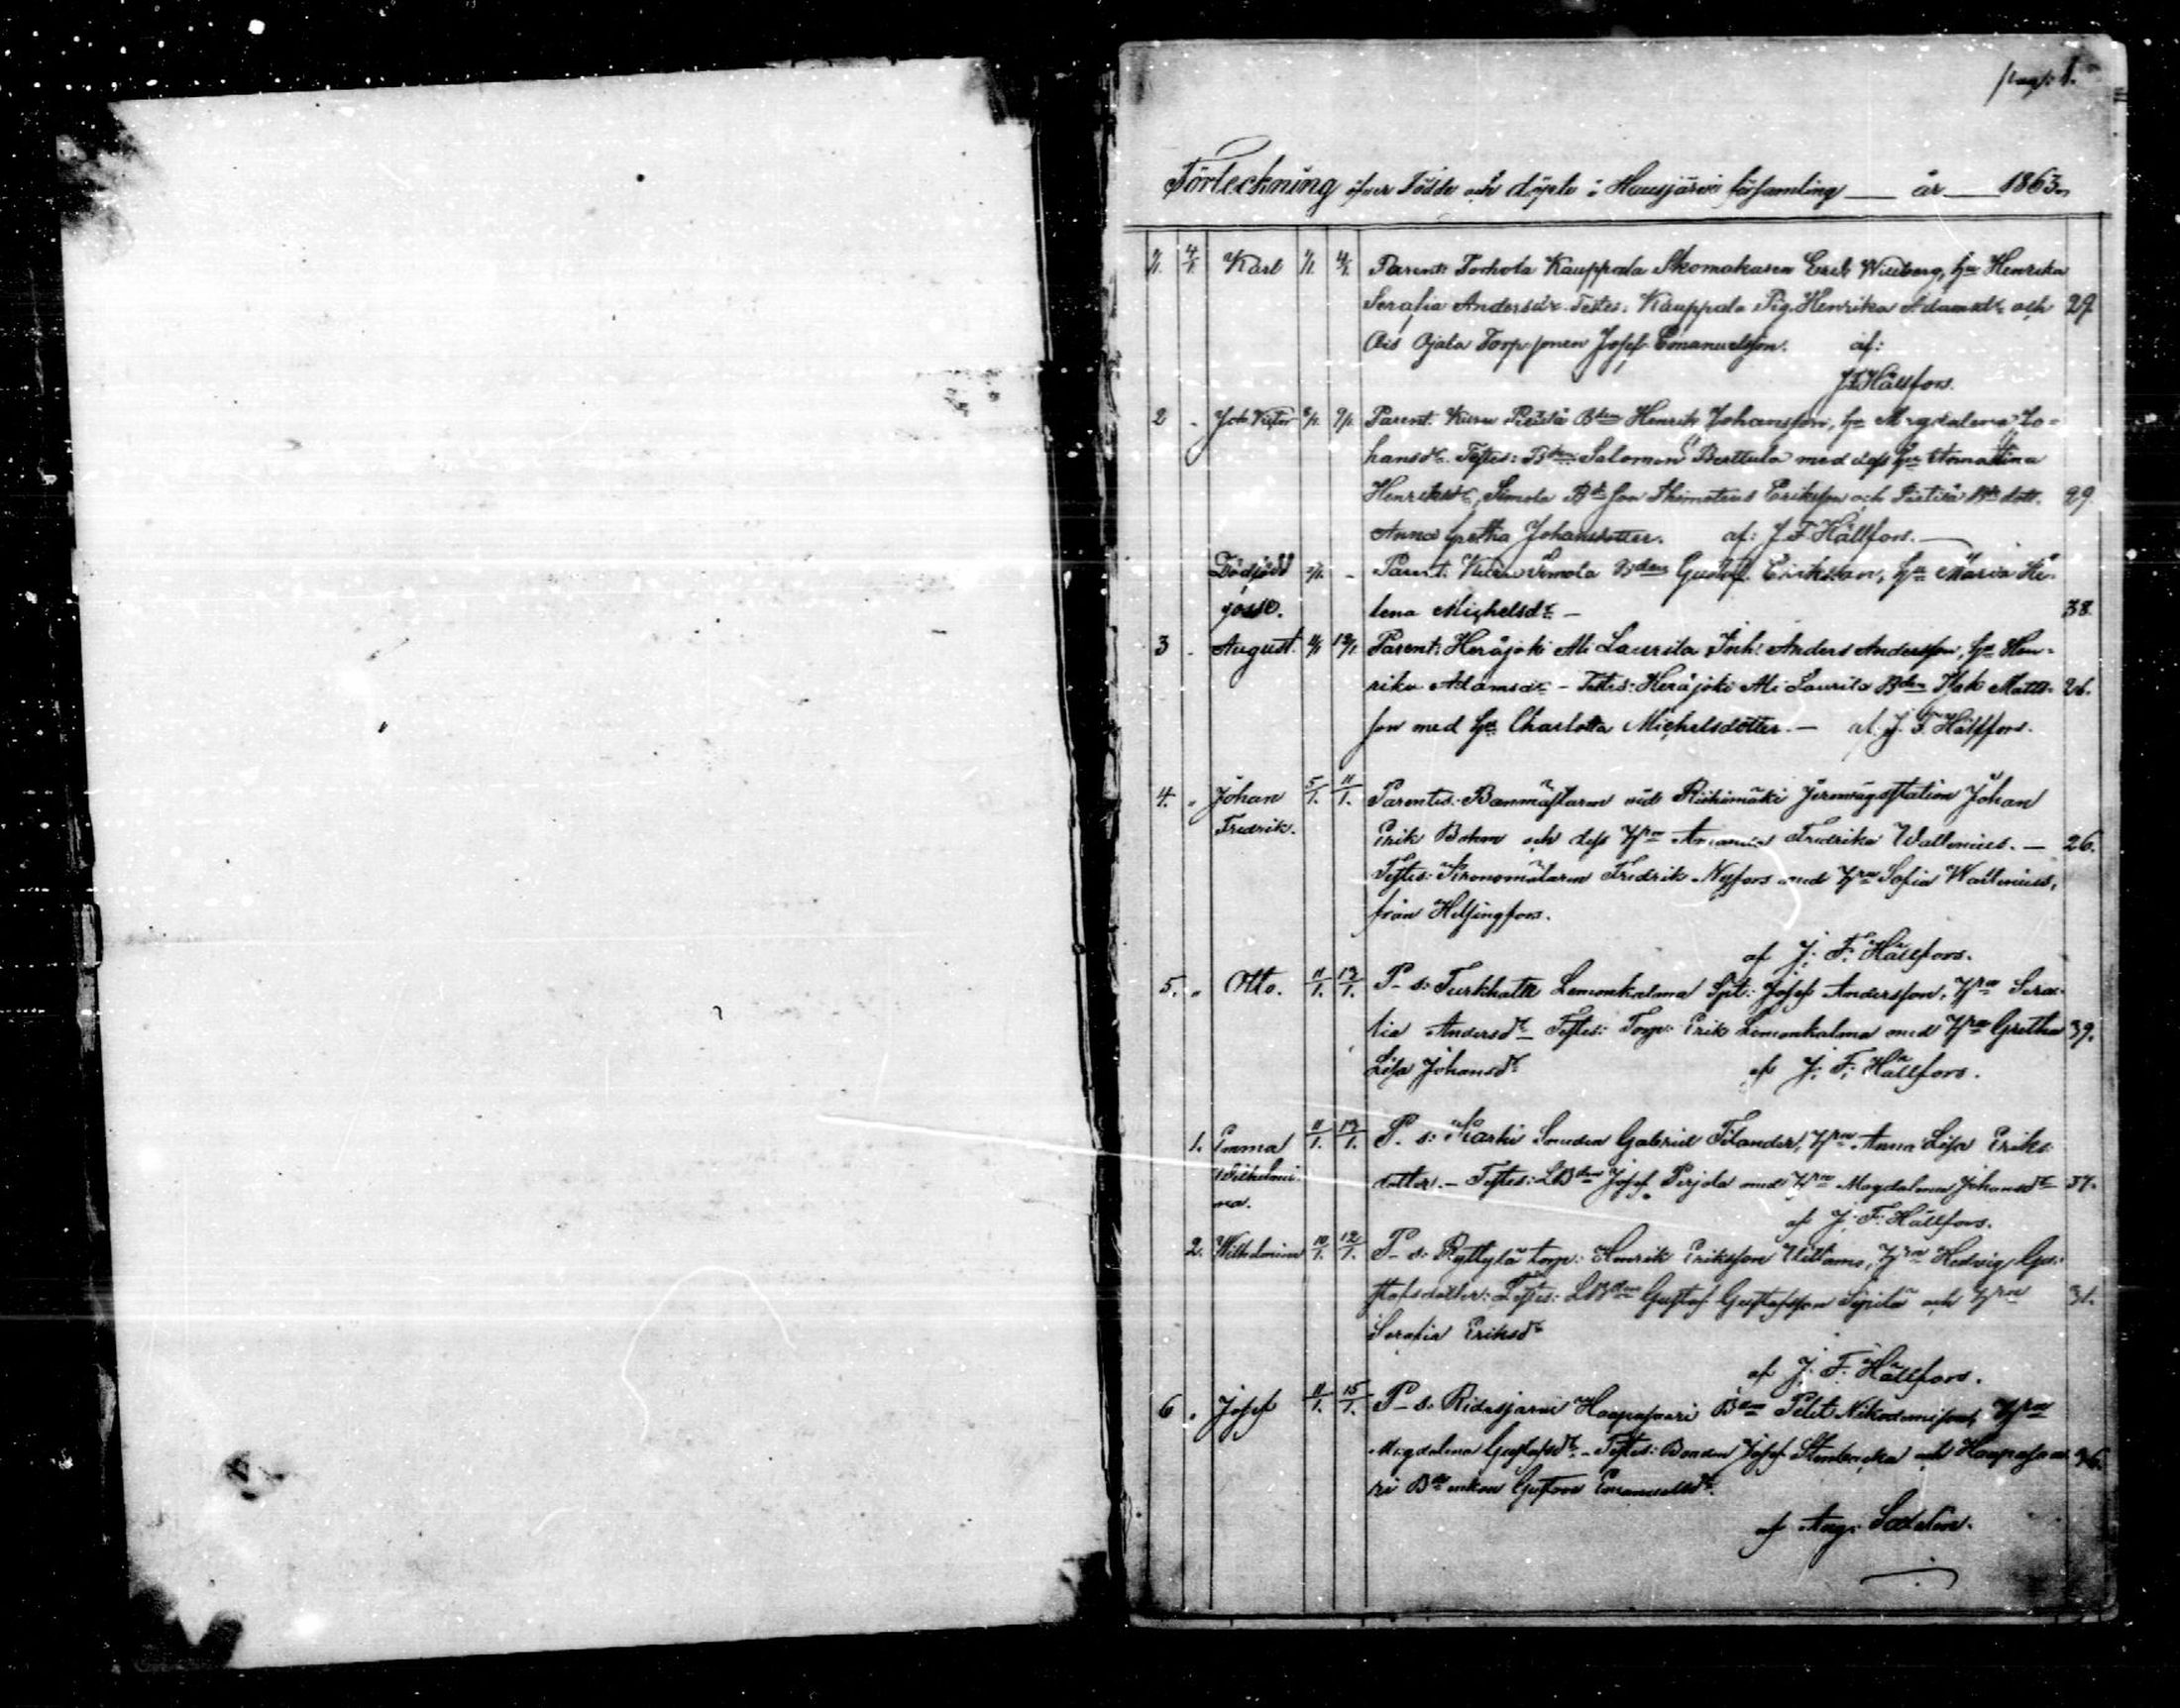 pag: 1.
Förteckning öfver Födde och döpte i Hausjärvi församling — år — 1863.
Karl 4/1. Parent: Torhola Kauppala Skomakaren Erik Wiberg, hu Henrika
Serafia Andersdr. Testes: Kauppala Pig. Henrika Adamsdr och 27
Ojala Torp. sonen Josef Emanuelsson. af:
J.F. Hällfors.
2 Joh. Victor 9/1. Parent. Kuru Pietilä Bden Henrik Johansson, hu Magdalena Jo=
hansdr. Testes: Bden Salomon Berttula med dess hu Anna Stina
Henriksdr, Simola Bde son Thimoteus Eriksson och Pietilä Bde dott. 29.
Anna Gretha Johansdotter. af: J F Hällfors.
Dödfödd – Parent. Kuru Simola Bden Gustaf Eriksson, hu Maria He=
gosse. lena Michelsdr — 38
3 August. 11/1 12/1 Parent: Heräjoki Ali Laurila Inh: Anders Andersson, hu Hen=
rika Adamsdr – Testes: Heräjoki Ali Laurila Bden Isak Matts= 26.
son med hu Charlotta Michelsdotter. — af. J. F. Hällfors.
4. „ Johan 5/1. 11/1. Parentes: Banmästaren vid Riihimäki Jernvägsstation Johan
Fredrik. Erik Bohm och dess Hru Amanda Fredrika Wallenius. — 26.
Testes: Fredrik Nyfors med Hru Sofia Wallenius,
från Helsingfors.
af J. F. Hällfors.
5. „ Otto. 11/1. 12/1. P–s: Turkhauta Lemonkalma Spt: Josef Andersson, Hru Sera=
fia Andersdr – Testes: Torp: Erik Lemonkalma med Hru Gretha 39.
Lisa Johansdr af J. F. Hällfors.
1. Emma 11/1. 12/1. P. s: Karhi Smeden Gabriel Filander, Hru Anna Lisa Eriks=
Wilhelmi= dotter. – Testes: LBden Josef Perjola med Hru Magdalena Johansdr 37.
na. af J. F. Hällfors.
2. Wilhelmina 10/1. 12/1. P–s: Ryttylä torp: Henrik Eriksson Uittamo, Hru Hedvig Gu=
stafsdotter: Testes: LBden Gustaf Gustafsson Sipilä och Hru 31.
Serafia Eriksdr
af J. F. Hällfors.
6 „ Josef 11/1. 15/1. P–s: Ridasjärvi Haapasaari Bden Petit Nikodemisson, Hru
Magdalena Gustafsdr. – Testes: Bonden Josef och Haapasaa= 36.
ri Bde enkan Gustava Emanuelsdr.
af Aug: Sædelin.